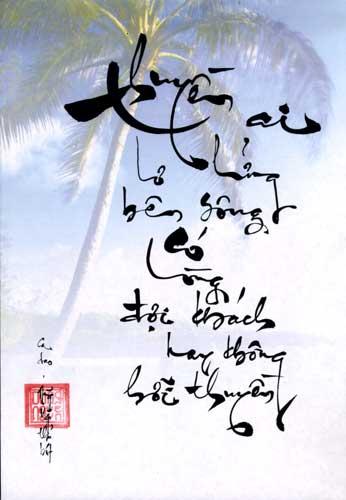 thuyền ai
lơ lửng
bên sông
có
lòng
đợi khách
hay không
hỡi thuyền
ca
dao